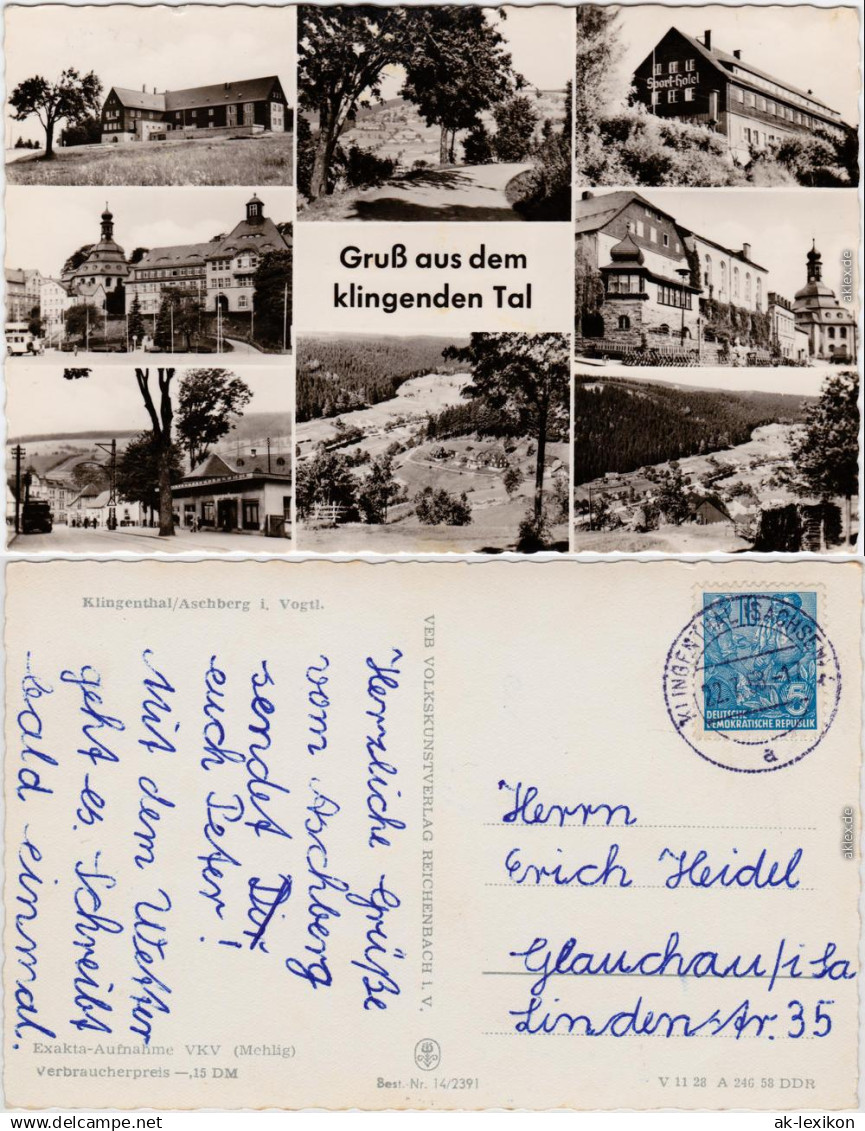 Sport-Hotel
Gruß aus dem
klingenden Tal
Klingenthal/Aschberg i. Vogtl.
Herzliche Grüße
vom Aschberg
sendet Dir
euch Peter!
Mit dem Wetter
geht es. Schreibt
bald einmal.
VEB VOLKSKUNSTVERLAG REICHENBACH i. V.
Exakta-Aufnahme VKV (Mehlig)
Verbraucherpreis —,15 DM
Best.-Nr. 14/2391
V 11 28 A 246 58 DDR
KLINGENTHAL (SACHSEN)
a
5
DEUTSCHE
DEMOKRATISCHE REPUBLIK
Herrn
Erich Heidel
Glauchau/i Sa
Lindenstr. 35
aklex.de
aklex.de
ak-lexikon.de